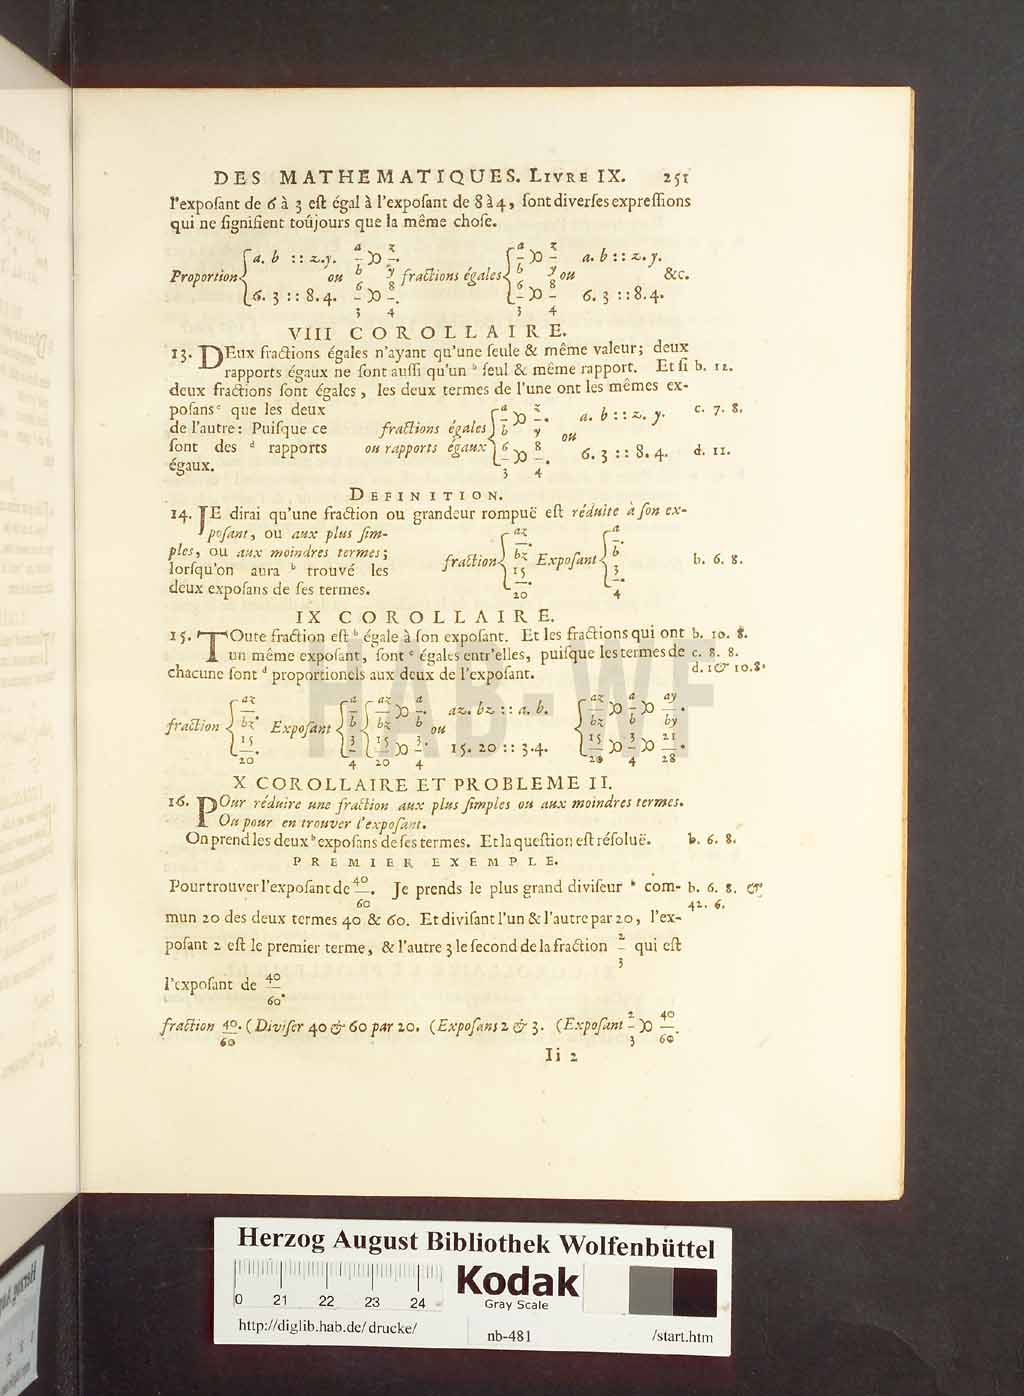 DES MATHEMATIQUES. LIVRE IX. 251
l'exposant de 6 à 3 est égal à l'exposant de 8 à 4, sont diverses expressions
qui ne signifient toûjours que la même chose.
Proportion { a. b :: z. y. ou a/b ꝏ z/y. fractions égales { a/b ꝏ z/y ou a. b :: z. y. &c.
{ 6. 3 :: 8. 4. 6/3 ꝏ 8/4. { 6/3 ꝏ 8/4 6. 3 :: 8. 4.
VIII COROLLAIRE.
13. DEux fractions égales n'ayant qu'une seule & même valeur; deux
rapports égaux ne sont aussi qu'un b seul & même rapport. Et si b. 12.
deux fractions sont égales, les deux termes de l'une ont les mêmes ex-
posans c que les deux c. 7. 8.
de l'autre: Puisque ce
sont des d rapports d. 11.
égaux.
fractions égales ou rapports égaux { a/b ꝏ z/y. ou a. b :: z. y.
{ 6/3 ꝏ 8/4. 6. 3 :: 8. 4.
DEFINITION.
14. JE dirai qu'une fraction ou grandeur rompuë est réduite à son ex-
posant, ou aux plus sim-
ples, ou aux moindres termes;
lorsqu'on aura b trouvé les
deux exposans de ses termes.
fraction { az/bz. 15/20. Exposant { a/b. 3/4. b. 6. 8.
IX COROLLAIRE.
15. TOute fraction est b égale à son exposant. Et les fractions qui ont b. 10. 8.
un même exposant, sont c égales entr'elles, puisque les termes de c. 8. 8.
chacune sont d proportionels aux deux de l'exposant. d. 1 & 10. 8.
fraction { az/bz. Exposant { a/b { az/bz ꝏ a/b. ou az. bz :: a. b. { az/bz ꝏ a/b ꝏ ay/by.
{ 15/20. { 3/4 { 15/20 ꝏ 3/4. 15. 20 :: 3. 4. { 15/20 ꝏ 3/4 ꝏ 21/28.
X COROLLAIRE ET PROBLEME II.
16. POur réduire une fraction aux plus simples ou aux moindres termes.
Ou pour en trouver l'exposant.
On prend les deux b exposans de ses termes. Et la question est résoluë. b. 6. 8.
PREMIER EXEMPLE.
Pour trouver l'exposant de 40/60. Je prends le plus grand diviseur b com- b. 6. 8. &
42. 6.
mun 20 des deux termes 40 & 60. Et divisant l'un & l'autre par 20, l'ex-
posant 2 est le premier terme, & l'autre 3 le second de la fraction 2/3 qui est
l'exposant de 40/60.
fraction 40/60. (Diviser 40 & 60 par 20. (Exposans 2 & 3. (Exposant 2/3 ꝏ 40/60.
Ii 2
HAB-WF
Herzog August Bibliothek Wolfenbüttel
0 21 22 23 24
Kodak
Gray Scale
http://diglib.hab.de/drucke/ nb-481 /start.htm